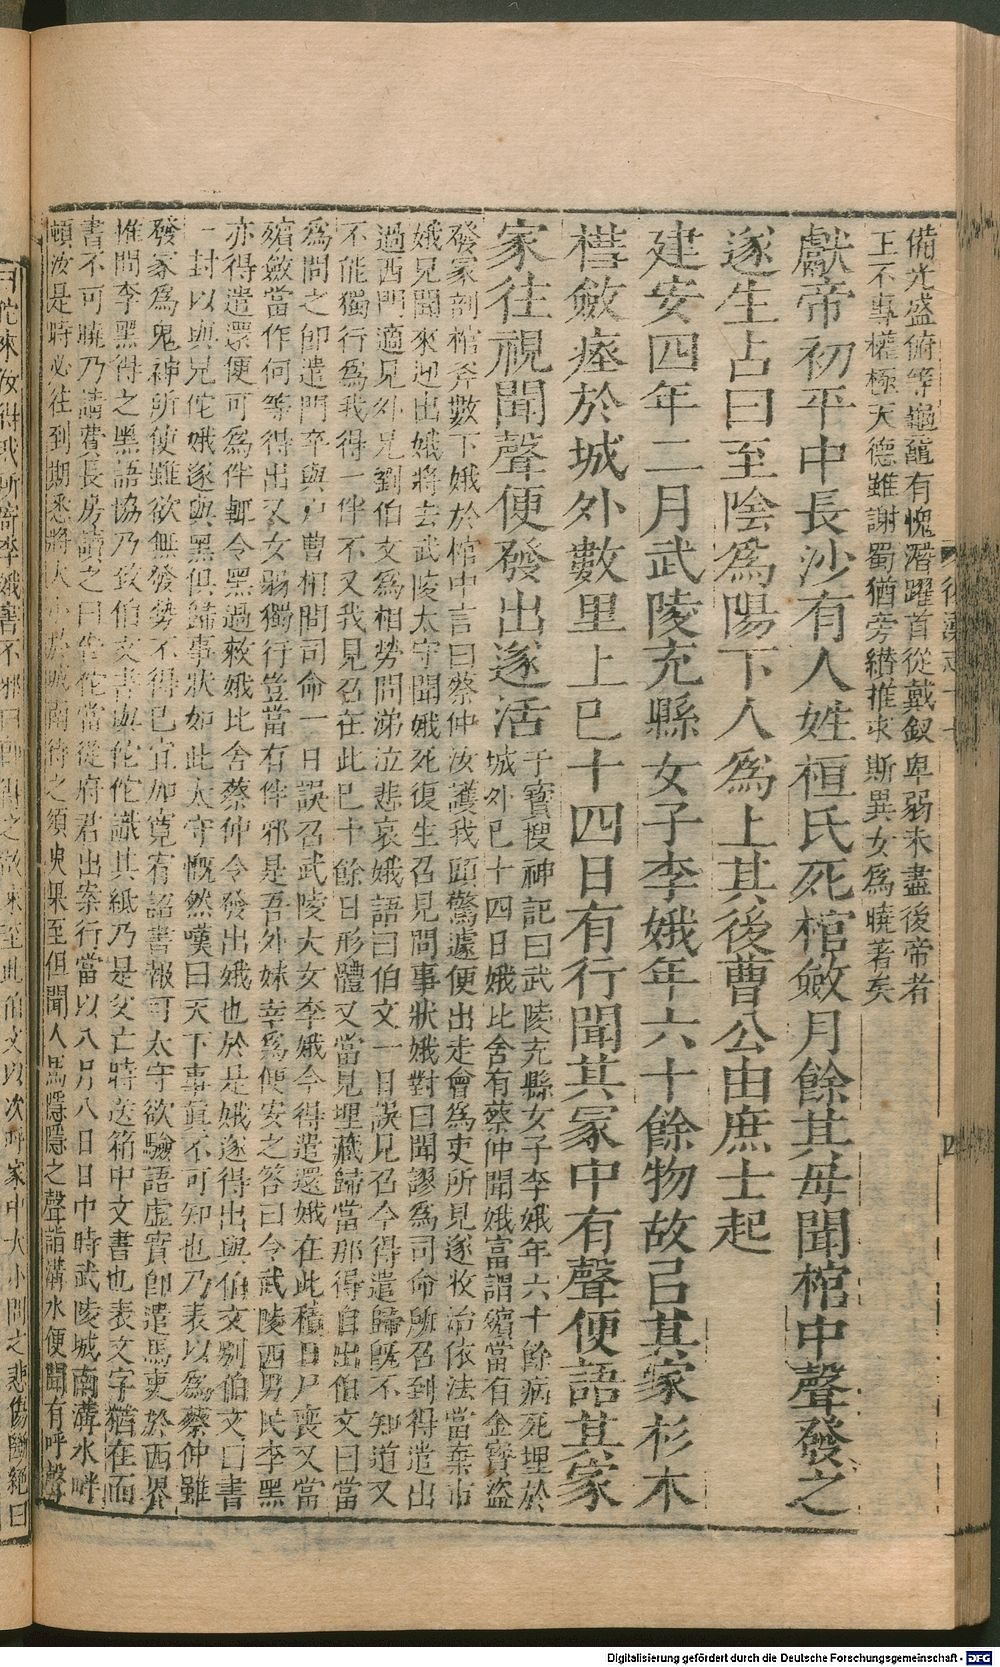 備光盛俯等龜鼊有愧潛躍首從戴釵卑弱未盡後帝者
王不專權極天德雖謝蜀猶旁纘推求斯異女為曉著矣
獻帝初平中長沙有人姓桓氏死棺斂月餘其母聞棺中聲發之
遂生占曰至陰爲陽下人爲上其後曹公由庶士起
建安四年二月武陵充縣女子李娥年六十餘物故㠯其家杉木
槥斂瘞於城外數里上已十四日有行聞其冢中有聲便語其家
家往視聞聲便發出遂活
干寶搜神記曰武陵充縣女子李娥年六十餘病死埋於
城外已十四日娥比舍有蔡仲聞娥富謂殯當有金寶盜
發冢剖棺斧數下娥於棺中言曰蔡仲汝護我頭驚遽便出走會爲吏所見遂收治依法當棄市
娥兒聞來迎出娥將去武陵太守聞娥死復生召見問事狀娥對曰聞謬爲司命所召到得遣出
過西門適見外兄劉伯文爲相勞問涕泣悲哀娥語曰伯文一日誤見召今得遣歸旣不知道又
不能獨行爲我得一伴不又我見召在此已十餘日形體又當見埋藏歸當那得自出伯文曰當
爲問之卽遣門卒與戶曹相問司命一日誤召武陵大女李娥今得遣還娥在此積日尸喪又當
殯斂當作何等得出又女弱獨行豈當有伴邪是吾外妹幸爲便安之答曰今武陵西男民李黑
亦得遣還便可爲伴輒令黑過敕娥比舍蔡仲令發出娥也於是娥遂得出與伯文別伯文曰書
一封以與兒佗娥遂與黑俱歸事狀如此太守慨然嘆曰天下事眞不可知也乃表以爲蔡仲雖
發冢爲鬼神所使雖欲無發勢不得已宜加寬宥詔書報可太守欲驗語虛實卽遣馬吏於西界
推問李黑得之黑語協乃致伯文書與佗佗識其紙乃是父亡時送箱中文書也表文字猶在而
書不可曉乃請費長房讀之曰告佗當從府君出案行當以八月八日日中時武陵城南溝水畔
頓汝是時必往到期悉將大小於城南待之須臾果至但聞人馬隱隱之聲詣溝水便聞有呼聲
曰佗來汝得我所寄李娥書不邪曰卽得之故來至此伯文以次呼家中大小問之悲傷斷絕曰
後漢志十七
四
Digitalisierung gefördert durch die Deutsche Forschungsgemeinschaft - DFG